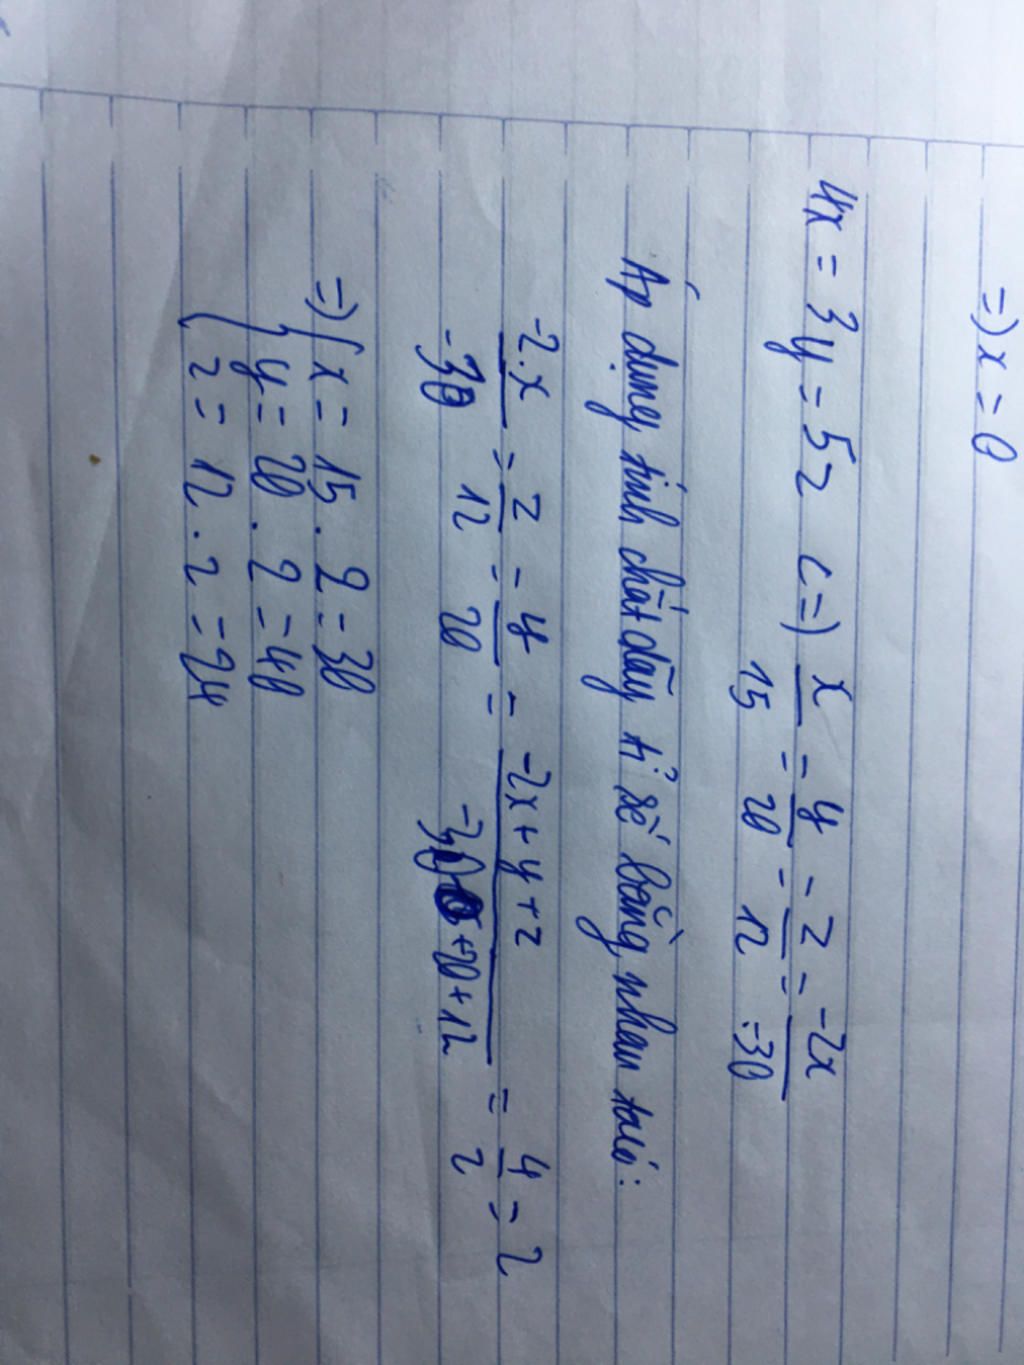 =) x = 0
4x = 3y = 5z <=) x/15 = y/20 = z/12 = -2x/-30
Áp dụng tính chất dãy tỉ số bằng nhau ta có:
-2.x/-30 = z/12 = y/20 = -2x+y+z/-30+20+12 = 4/2 = 2
=) { x = 15 . 2 = 30
y = 20 . 2 = 40
z = 12 . 2 = 24